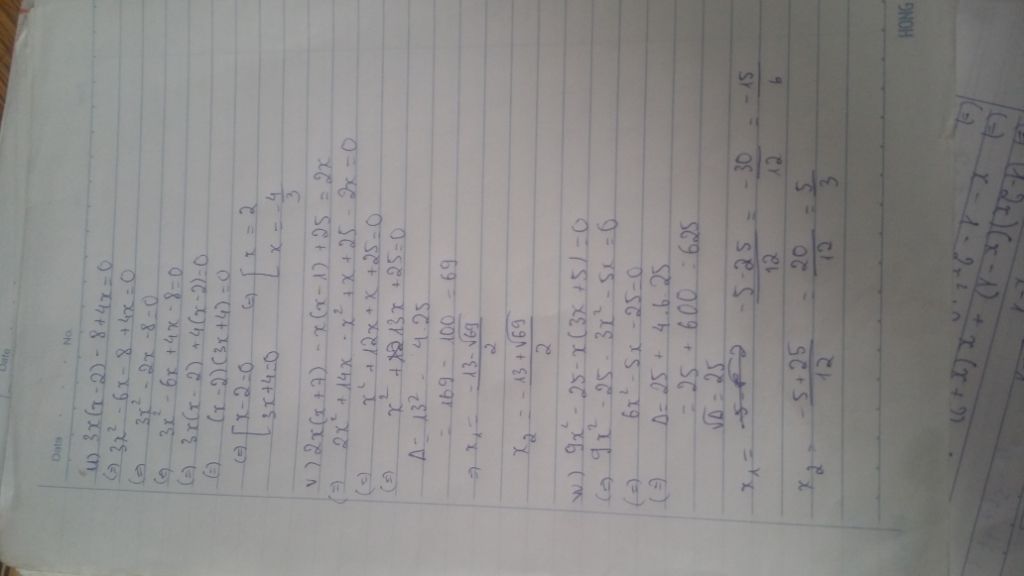 Date
No.
u) 3x(x-2) - 8 + 4x = 0
(=) 3x² - 6x - 8 + 4x = 0
(=) 3x² - 2x - 8 = 0
(=) 3x² - 6x + 4x - 8 = 0
(=) 3x(x-2) + 4(x-2) = 0
(=) (x-2)(3x+4) = 0
(=) [x-2=0 (=) [x = 2
[3x+4=0 [x = -4/3
v) 2x(x+7) - x(x-1) + 25 = 2x
(=) 2x² + 14x - x² + x + 25 - 2x = 0
(=) x² + 12x + x + 25 = 0
(=) x² + 13x + 25 = 0
Δ = 13² - 4.25
= 169 - 100 = 69
=> x₁ = (-13-√69)/2
x₂ = (-13+√69)/2
w) 9x² - 25 - x(3x+5) = 0
(=) 9x² - 25 - 3x² - 5x = 0
(=) 6x² - 5x - 25 = 0
(=) Δ = 25 + 4.6.25
= 25 + 600 = 625
√Δ = 25
x₁ = (-5-25)/12 = -30/12 = -15/6
x₂ = (-5+25)/12 = 20/12 = 5/3
HONG